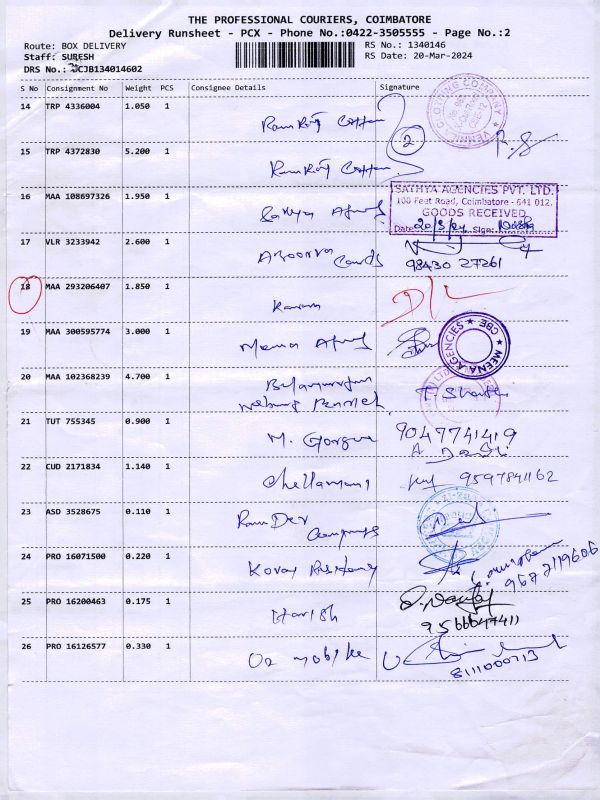 THE PROFESSIONAL COURIERS, COIMBATORE
Delivery Runsheet - PCX - Phone No.:0422-3505555 - Page No.:2
Route: BOX DELIVERY RS No.: 1340146
Staff: SURESH RS Date: 20-Mar-2024
DRS No.: CJB134014602
S No Consignment No Weight PCS Consignee Details Signature
14 TRP 4336004 1.050 1
2
15 TRP 4372830 5.200 1
16 MAA 108697326 1.950 1 Sathya
SATHYA AGENCIES PVT. LTD.
100 Feet Road, Coimbatore - 641 012.
GOODS RECEIVED
Date: 20/3/24 Sign:
17 VLR 3233942 2.600 1 Apoorva Cards
98430 27261
18 MAA 293206407 1.850 1 D/L
19 MAA 300595774 3.000 1 Meena
MEENA AGENCIES ★ CBE ★
20 MAA 102368239 4.700 1
21 TUT 755345 0.900 1 M. 9047741419
22 CUD 2171834 1.140 1 Chellamani 9597841162
23 ASD 3528675 0.110 1 Ram Dev
24 PRO 16071500 0.220 1 Kovai
25 PRO 16200463 0.175 1 Harish
9566647411
26 PRO 16126577 0.330 1 O2 mobike
8111000713